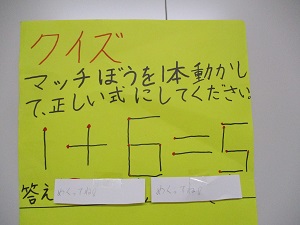 クイズ
マッチぼうを1本動かし
て、正しい式にしてください。
1+6=5
答え めくってね! めくってね!